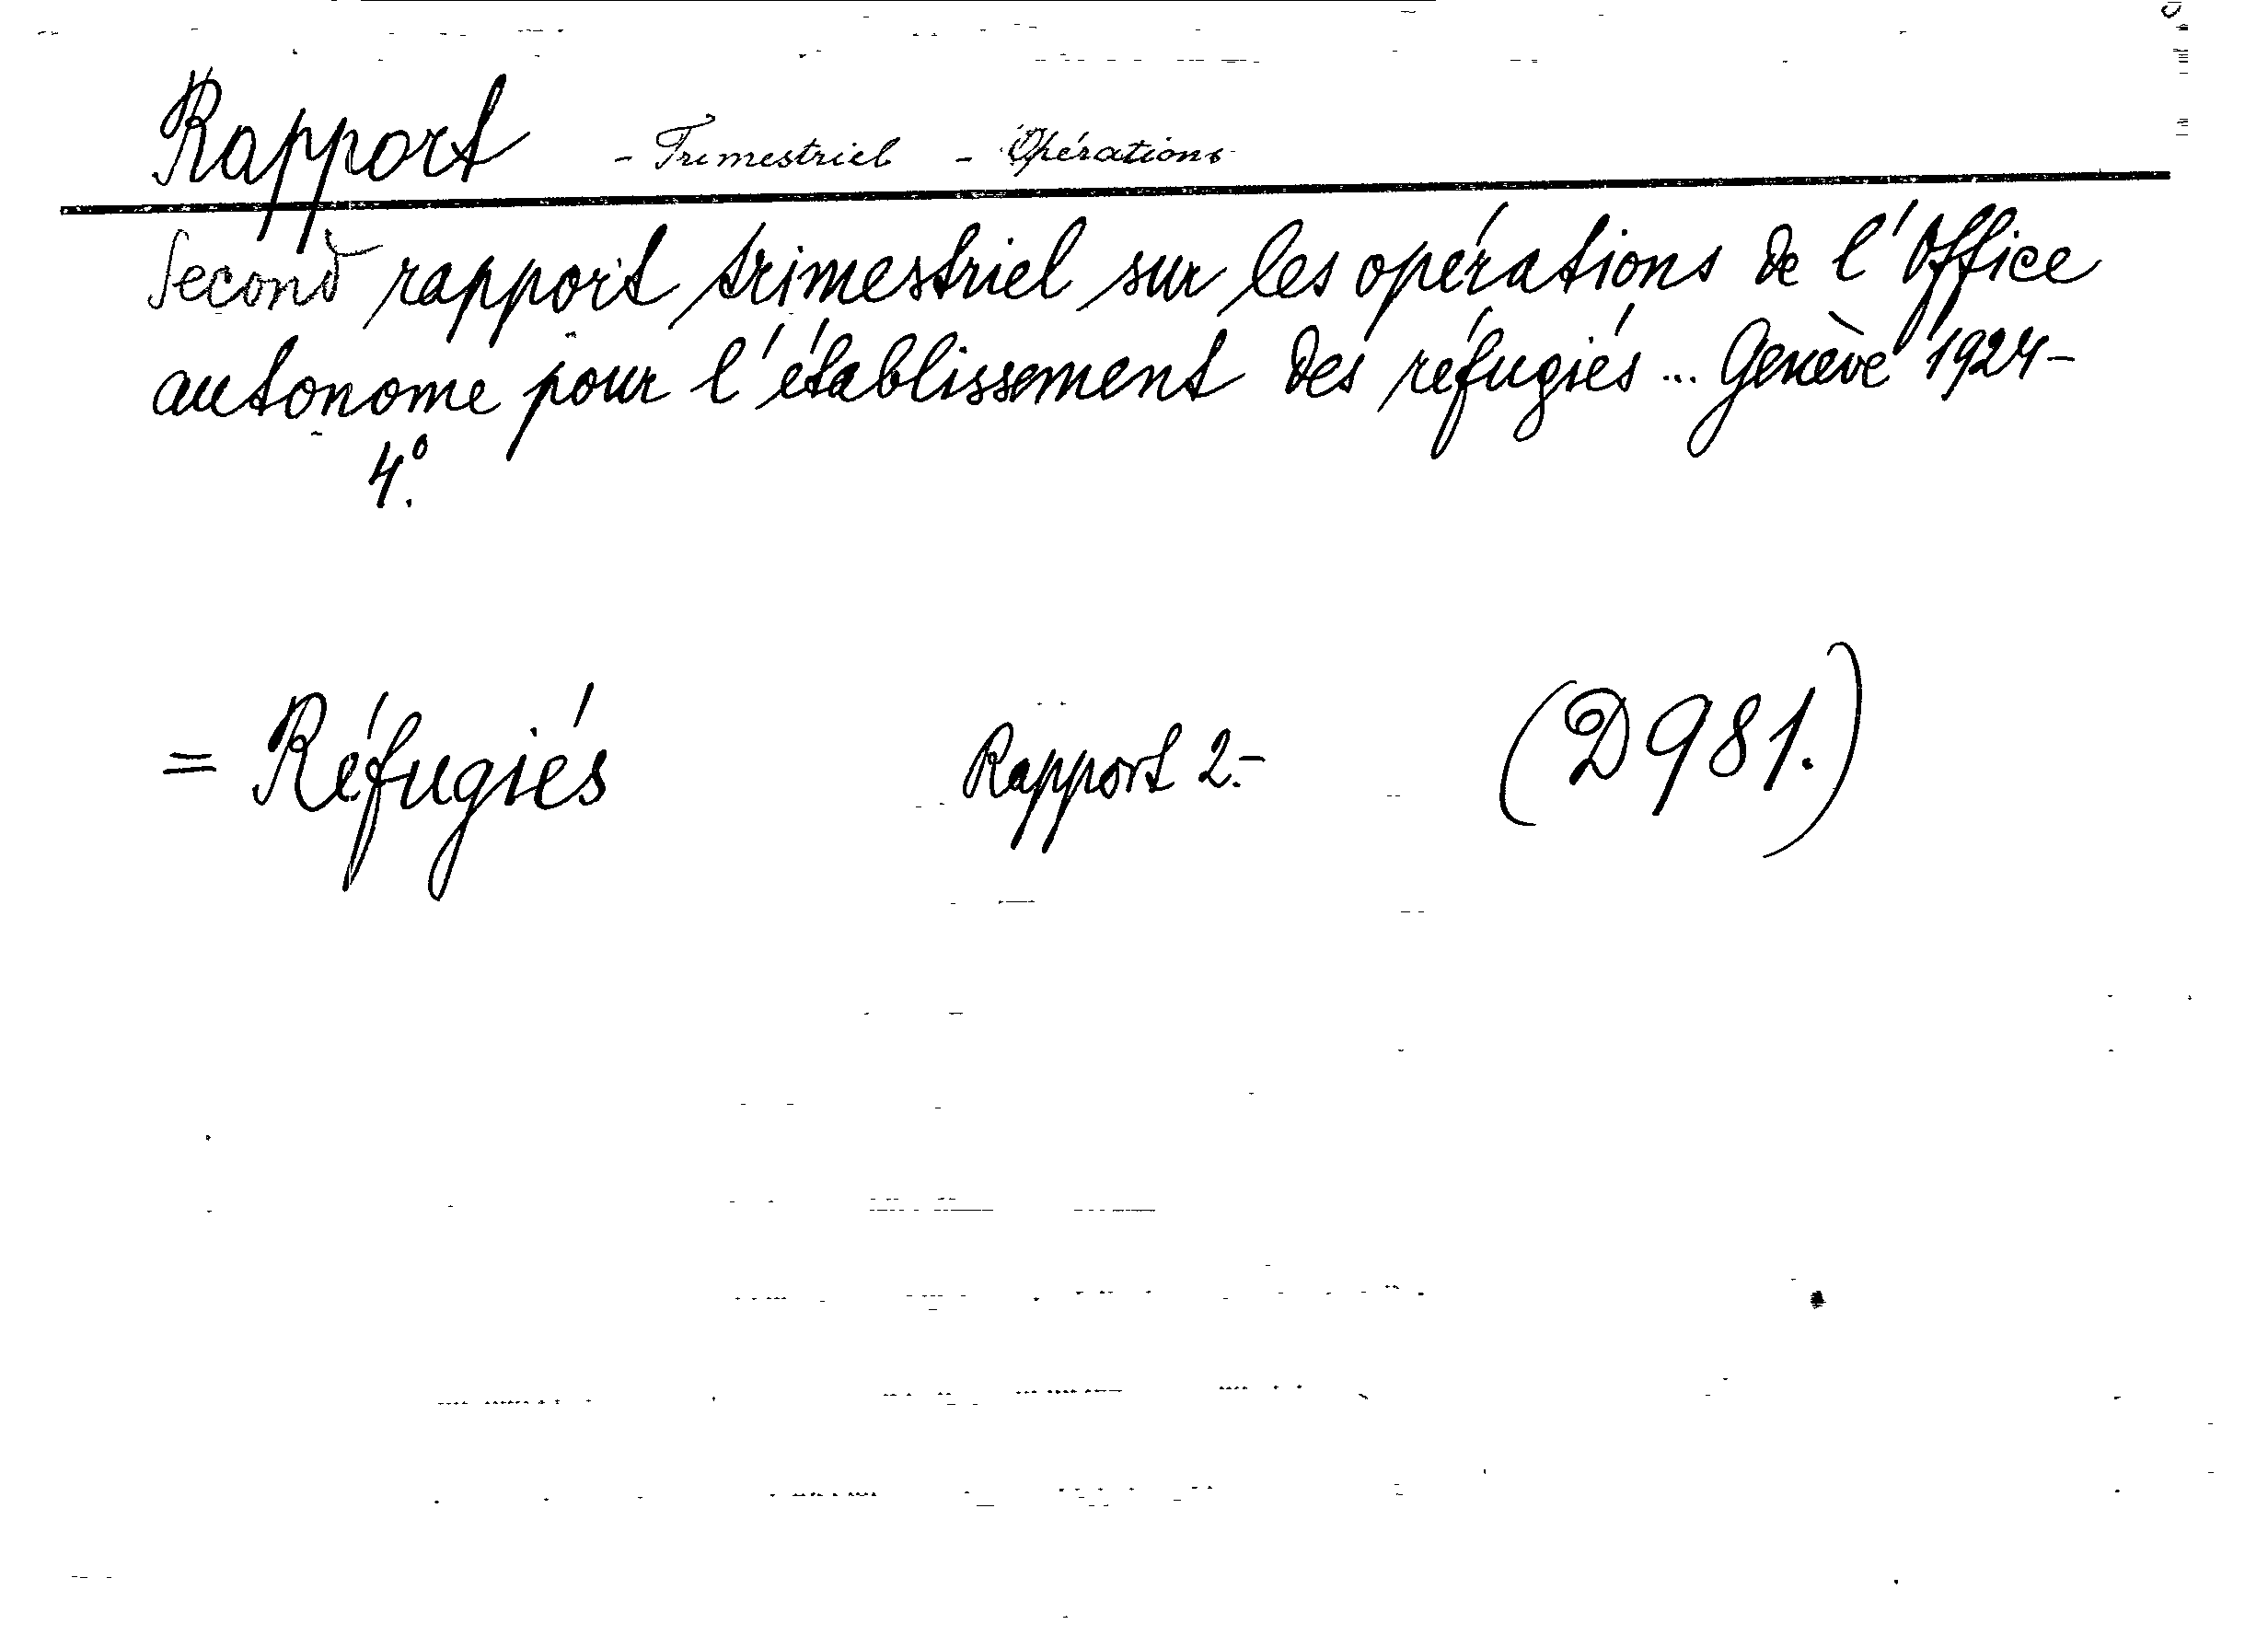 Rapport - Trimestriel - Opérations
Second rapport trimestriel sur les opérations de l'Office
autonome pour l'établissement des réfugiés ... Genève 1924-
4º.
= Réfugiés Rapport 2.- (D981.)